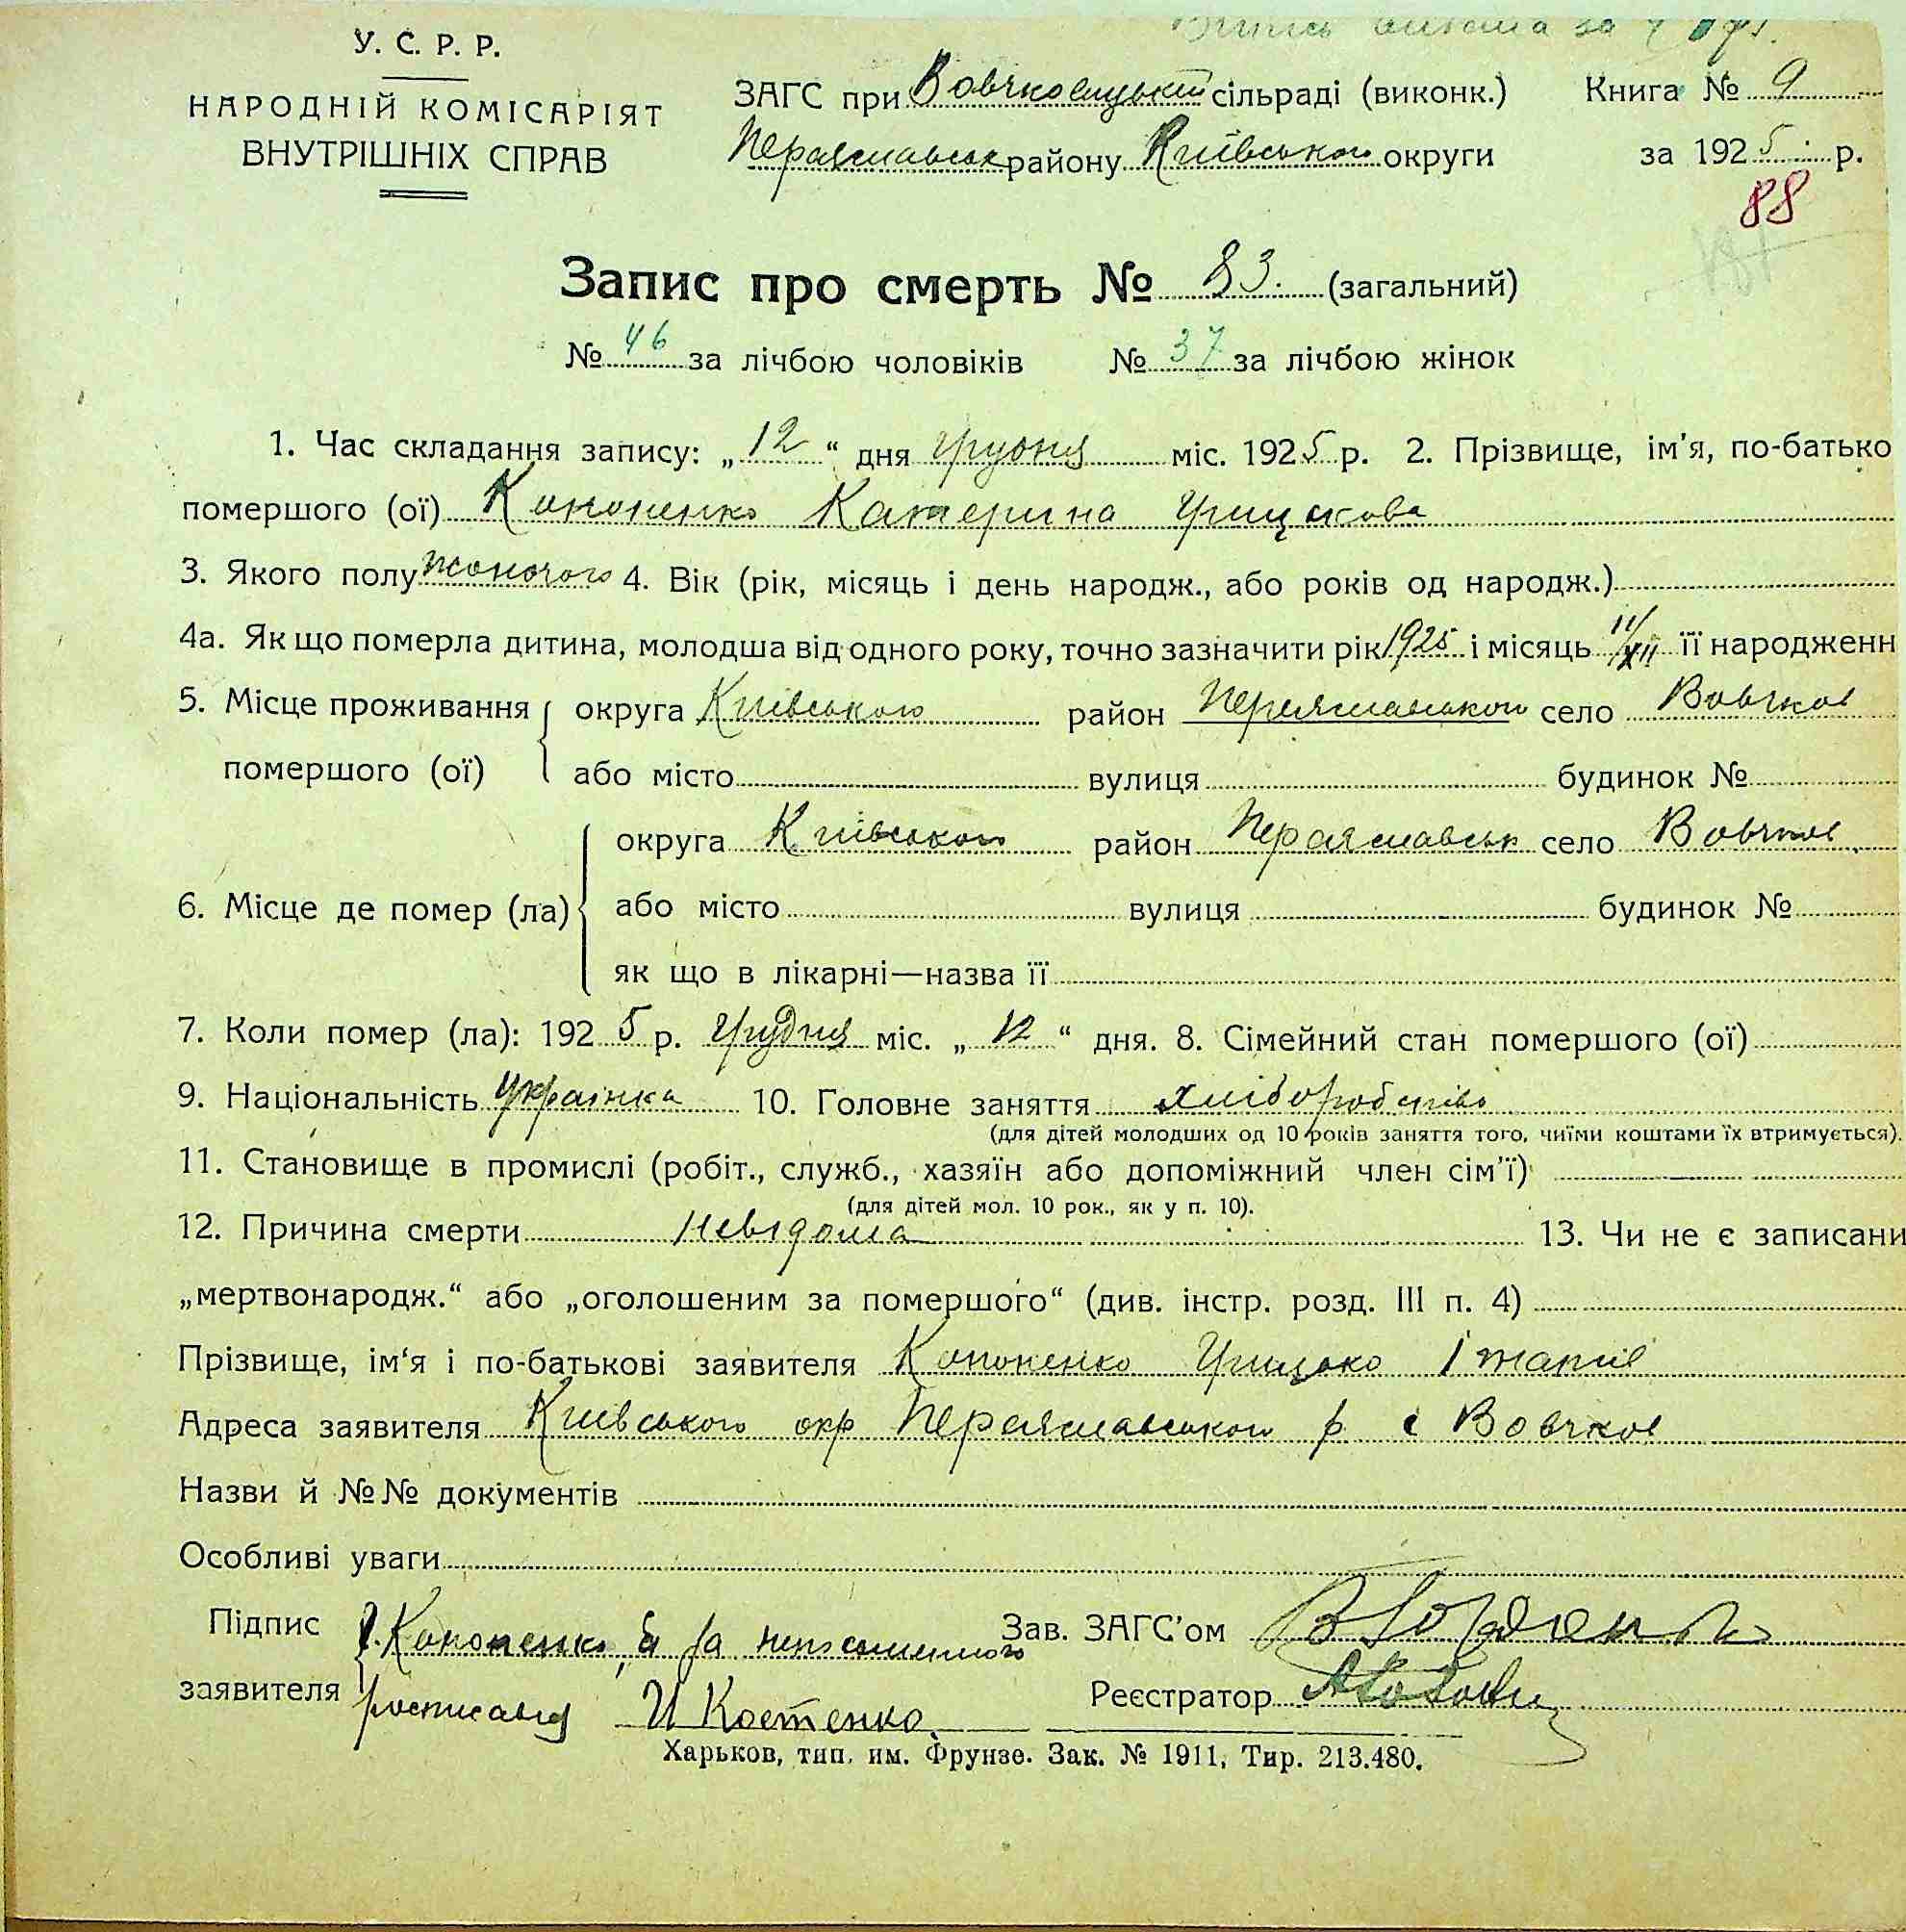 У. С. Р. Р.
НАРОДНІЙ КОМІСАРІЯТ
ВНУТРІШНІХ СПРАВ
ЗАГС при сільраді (виконк.)
Переяславськ району Київського округи
Книга № 9
за 1925 р.
88
Запис про смерть № 83. (загальний)
№ 46 за лічбою чоловіків № 37 за лічбою жінок
1. Час складання запису: „12“ дня грудня міс. 1925 р. 2. Прізвище, ім'я, по-батько
помершого (ої) Кононенко Катерина Грицькова
3. Якого полу жоночого 4. Вік (рік, місяць і день народж., або років од народж.)
4а. Як що померла дитина, молодша від одного року, точно зазначити рік 1925 і місяць 11/XII її народженн
5. Місце проживання помершого (ої) округа Київського район Переяславського село Вовчков
або місто вулиця будинок №
6. Місце де помер (ла) округа Київського район Переяславськ село Вовчков
або місто вулиця будинок №
як що в лікарні—назва її
7. Коли помер (ла): 1925 р. Грудня міс. „12“ дня. 8. Сімейний стан помершого (ої)
9. Національність Українка 10. Головне заняття хліборобство
(для дітей молодших од 10 років заняття того, чиїми коштами їх втримується).
11. Становище в промислі (робіт., служб., хазяїн або допоміжний член сім'ї)
(для дітей мол. 10 рок., як у п. 10).
12. Причина смерти невідома 13. Чи не є записани
„мертвонародж.“ або „оголошеним за помершого“ (див. інстр. розд. III п. 4)
Прізвище, ім'я і по-батькові заявителя Кононенко Грицько
Адреса заявителя Київського окр Переяславського р с Вовчков
Назви й №№ документів
Особливі уваги
Підпис заявителя Кононенко, а за неписьменного
росписався И Костенко
Зав. ЗАГС'ом
Реєстратор
Харьков, тип. им. Фрунзе. Зак. № 1911, Тир. 213.480.